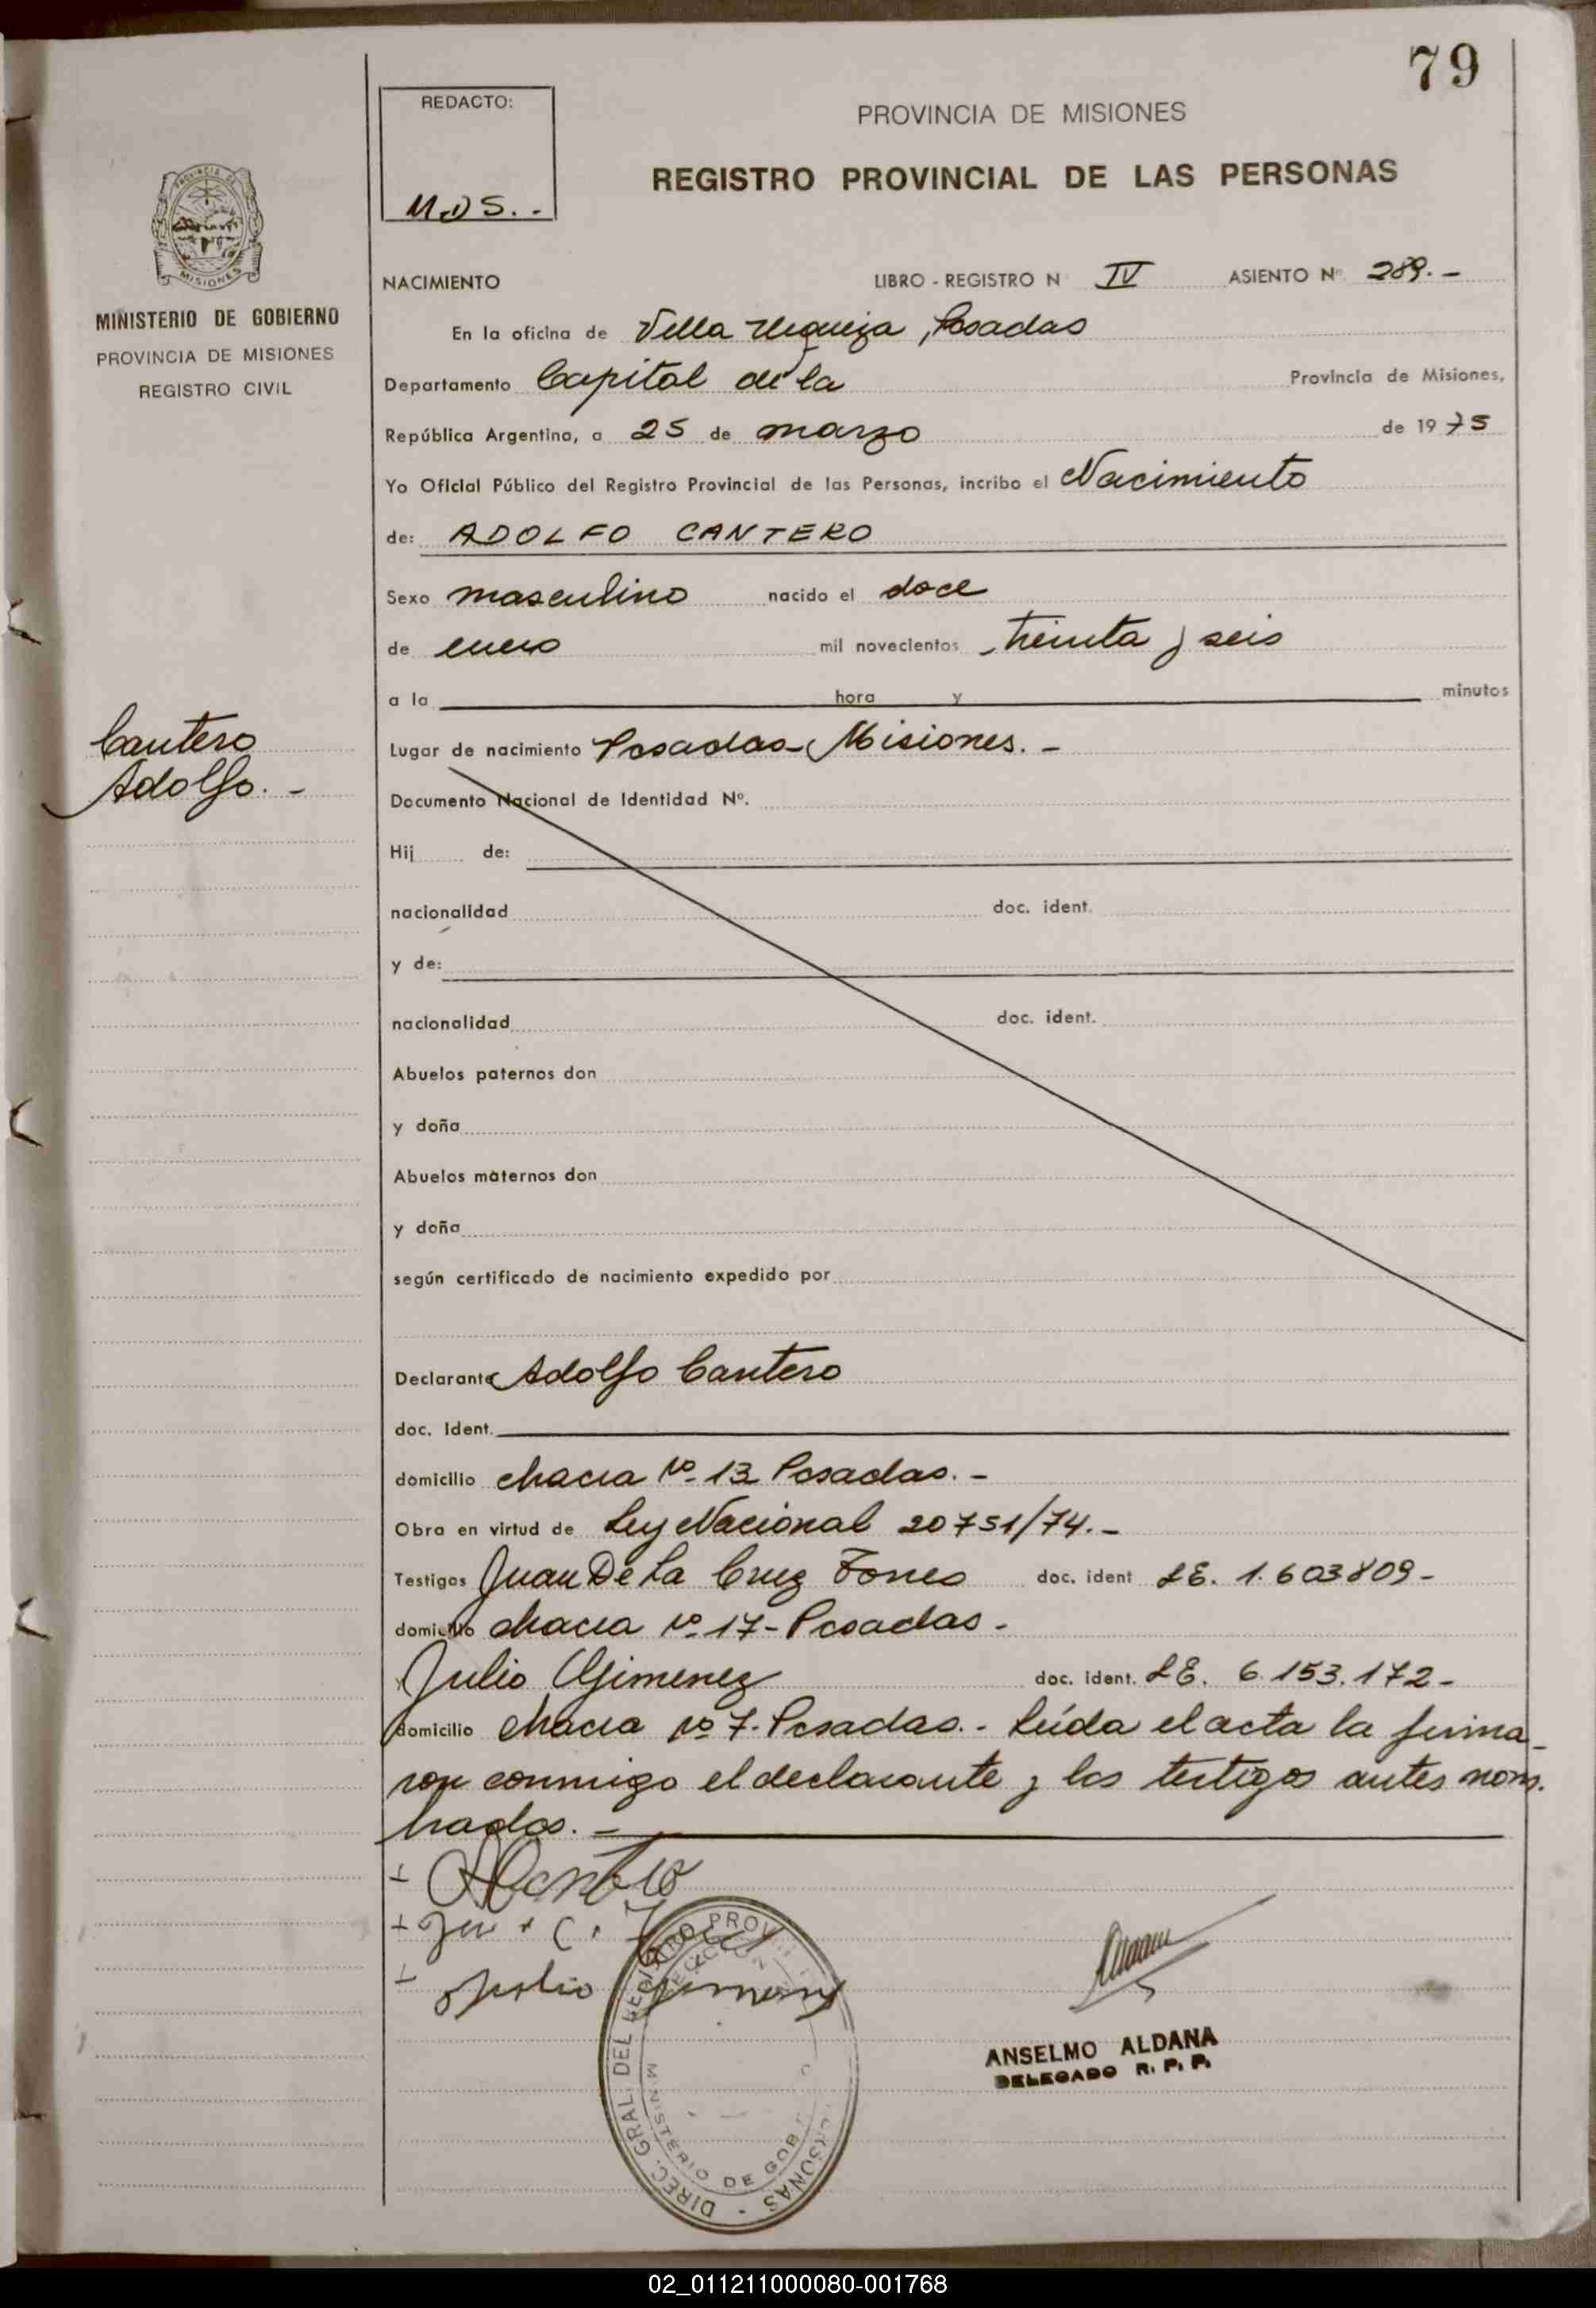 79
REDACTO:
M.D.S..-
PROVINCIA DE MISIONES
REGISTRO PROVINCIAL DE LAS PERSONAS
PROVINCIA DE
MISIONES
MINISTERIO DE GOBIERNO
PROVINCIA DE MISIONES
REGISTRO CIVIL
NACIMIENTO LIBRO - REGISTRO N IV ASIENTO Nº 289.-
En la oficina de Villa Urquiza, Posadas
Departamento Capital de la Provincia de Misiones,
República Argentina, a 25 de marzo de 1975
Yo Oficial Público del Registro Provincial de las Personas, incribo el Nacimiento
de: ADOLFO CANTERO
Sexo masculino nacido el doce
de enero mil novecientos treinta y seis
a la hora y minutos
Cantero
Adolfo.-
Lugar de nacimiento Posadas-Misiones.-
Documento Nacional de Identidad Nº.
Hij de:
nacionalidad doc. ident.
y de:
nacionalidad doc. ident.
Abuelos paternos don
y doña
Abuelos maternos don
y doña
según certificado de nacimiento expedido por
Declarante Adolfo Cantero
doc. Ident.
domicilio chacra Nº 13 Posadas.-
Obra en virtud de Ley Nacional 20751/74.-
Testigos Juan De La Cruz doc. ident LE. 1.603809-
domicilio chacra Nº 17-Posadas-
Julio Gimenez doc. ident. LE. 6.153.172-
domicilio chacra Nº 7-Posadas.- Leída el acta la firma-
ron conmigo el declarante y los testigos antes nom-
brados.-
Julio Gimenez
ANSELMO ALDANA
DELEGADO R. P. P.
DIREC. GRAL. DEL REGISTRO PROV PERSONAS -
MINISTERIO DE GOB
02_011211000080-001768